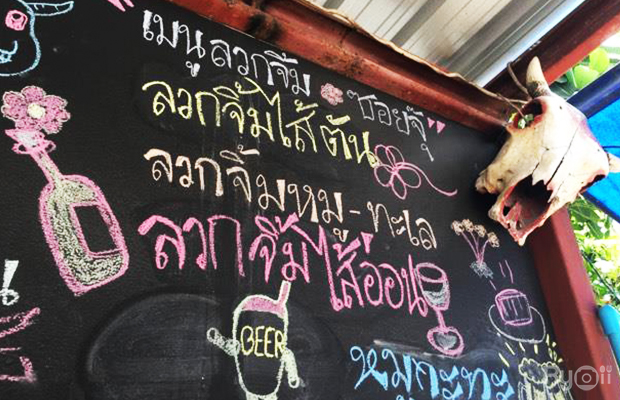 เมนูลวกจิ้ม ซอยจุ๊
ลวกจิ้มไส้ตัน
ลวกจิ้มหมู-ทะเล
ลวกจิ้มไส้อ่อน
BEER
หมูกะทะ